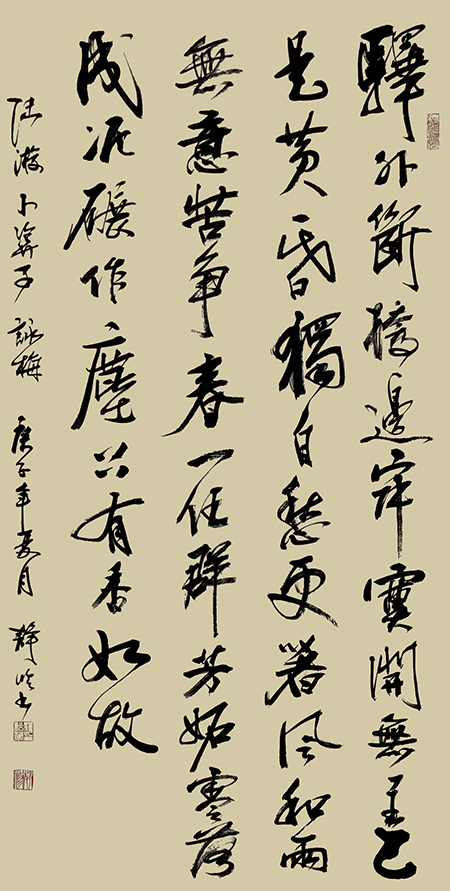 驛外斷橋邊寂寞開無主已
是黄昏獨自愁更著風和雨
無意苦争春一任群芳妬零落
成泥碾作塵只有香如故
陸游卜算子詠梅 庚子年夏月 靜書